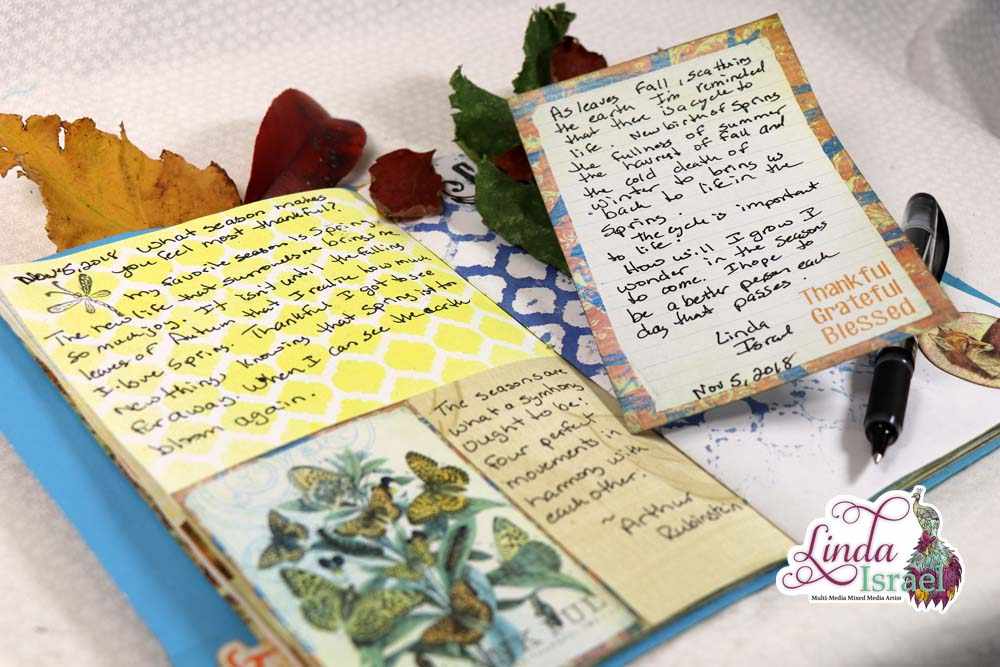 Nov 5, 2018
What season makes
you feel most thankful?
My favorite season is Spring.
The new life that surrounds me brings me
so much joy. It isn't until the falling
leaves of Autumn that I realize how much
I love Spring. Thankful I got to see
new things, knowing that Spring isn't to
far away. When I can see the earth
bloom again.
The seasons are
what a symphony
ought to be:
four perfect
movements in
harmony with
each other.
~ Arthur
Rubinstein
As leaves fall, scathing
the earth I'm reminded
that there is a cycle to
life. New birth of Spring
the fullness of summer
the harvest of fall and
the cold death of
winter to bring us
back to life in the
Spring.
The cycle is important
to life!
How will I grow I
wonder in the seasons
to come. I hope to
be a better person each
day that passes.
Linda
Israel
Nov 5, 2018
Thankful
Grateful
Blessed
Linda
Israel
Multi-Media Mixed Media Artist